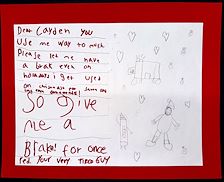 Dear Cayden you
use me way to much
Please let me have
a brak even on
holadays i get used
on chrismas for
So give
me a
Brake! for once
red. Your very Tired GUY